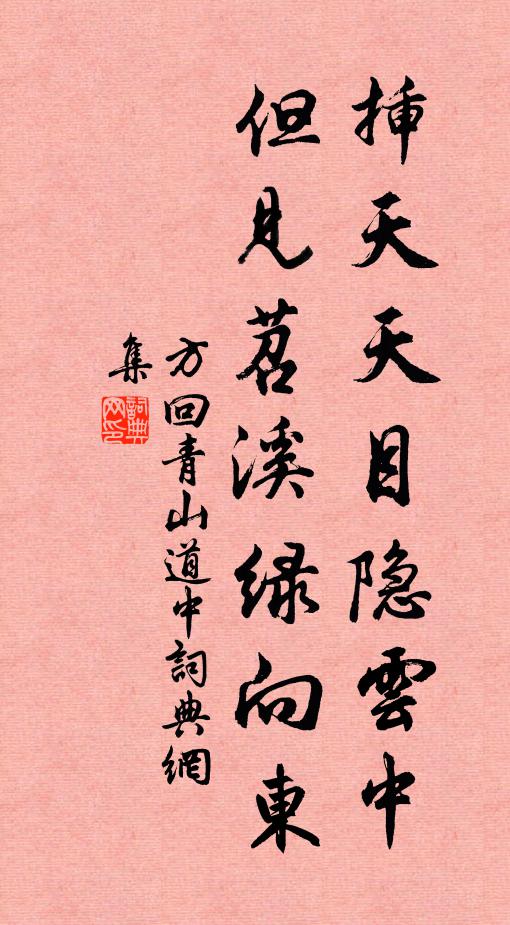 挿天天目隐雲中
但見苕溪绿向東
方回青山道中詞典網
集
詞典
网印